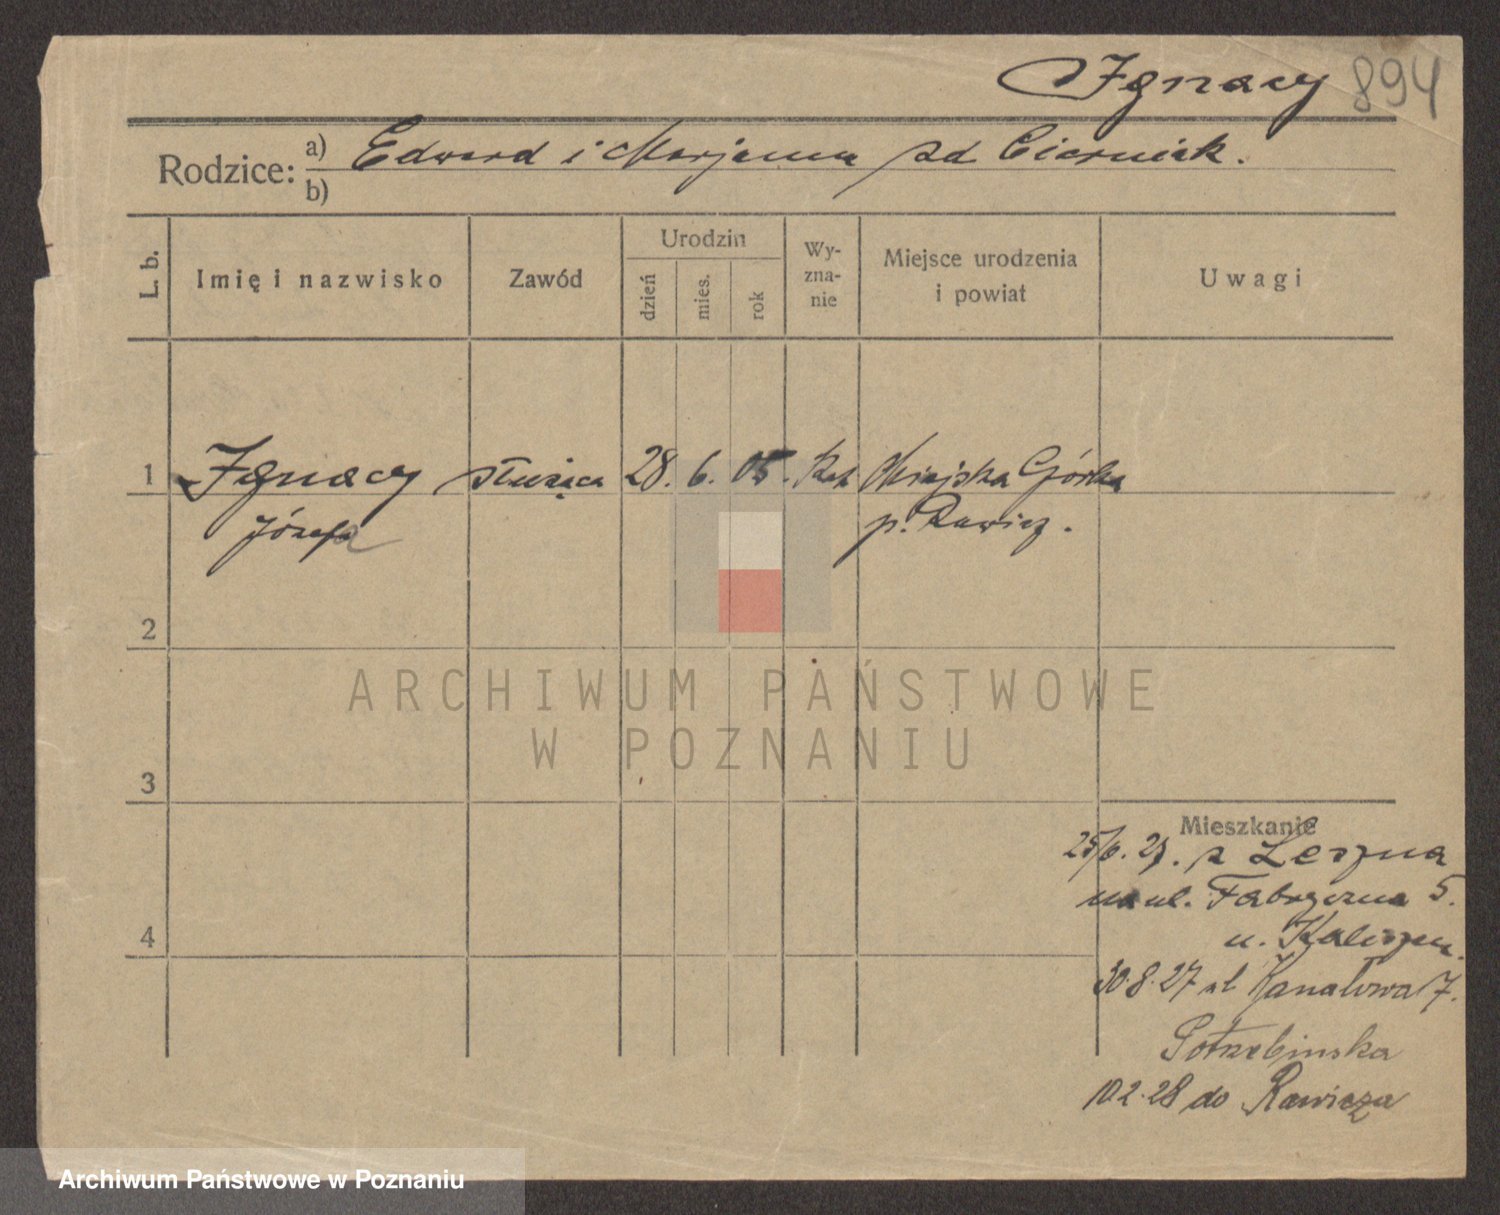 Ignacy 894
Rodzice: a) Edward i Marjanna zd Cierniak.
b)
L. b.
Imię i nazwisko
Zawód
Urodzin
dzień
mies.
rok
Wy-
zna-
nie
Miejsce urodzenia
i powiat
Uwagi
1 Ignacy służąca 28. 6. 05. Kat Miejska Górka
Józefa p. Rawicz.
2
3
4
ARCHIWUM PAŃSTWOWE
W POZNANIU
Mieszkanie
25/6. 27. z Leszna
na ul. Fabryczna 5.
u. Kaliszan.
30.8.27 ul Kanałowa 7.
Potrzebinska
10 2.28 do Rawicza
Archiwum Państwowe w Poznaniu